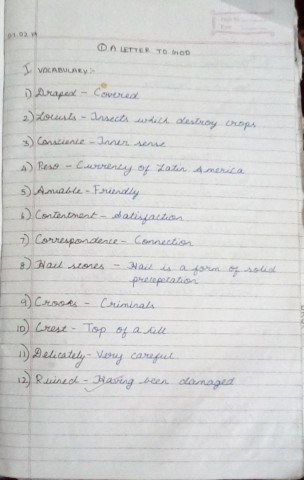 ① A LETTER TO GOD
I. VOCABULARY :-
1) Draped - Covered
2) Locusts - Insects which destroy crops
3) Conscience - Inner sense
4) Peso - Currency of Latin America
5) Amiable - Friendly
6) Contentment - Satisfaction
7) Correspondence - Connection
8) Hail stones - Hail is a form of solid
precipetation
9) Crooks - Criminals
10) Crest - Top of a hill
11) Delicately - Very careful
12) Ruined - Having been damaged